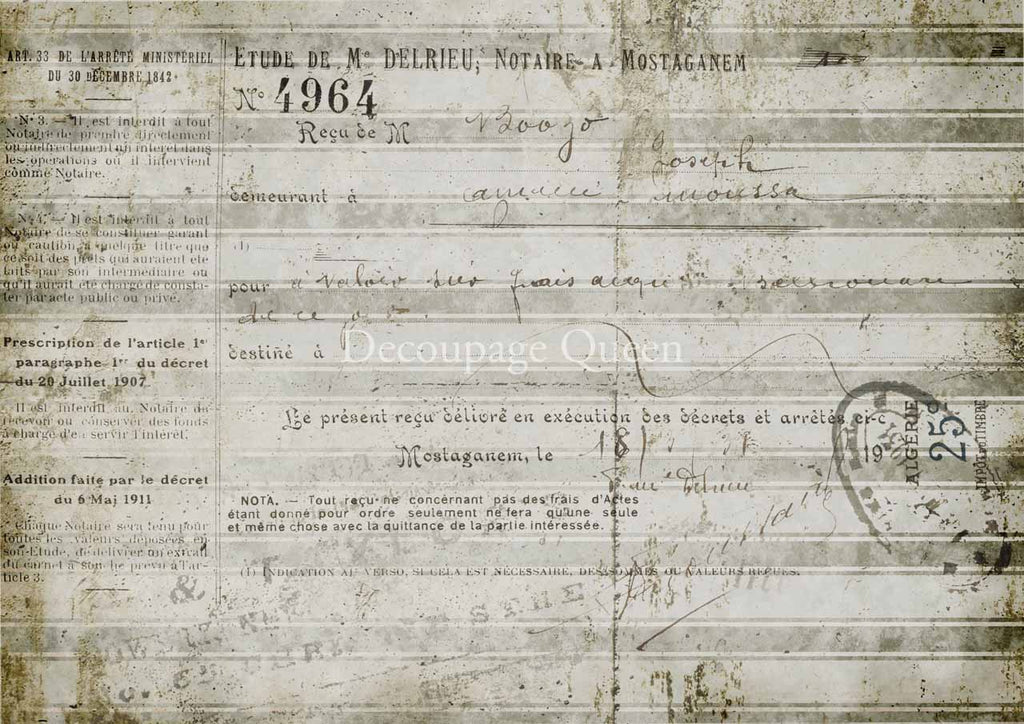 ART. 33 DE L'ARRÊTÉ MINISTÉRIEL
DU 30 DÉCEMBRE 1842
N° 3. — Il est interdit à tout
Notaire de prendre directement
ou indirectement un intérêt dans
les opérations où il intervient
comme Notaire.
N° 4. — Il est interdit à tout
Notaire de se constituer garant
ou caution à quelque titre que
ce soit des prêts qui auraient été
faits par son intermédiaire ou
qu'il aurait été chargé de consta-
ter par acte public ou privé.
Prescription de l'article 1er
paragraphe 1er du décret
du 20 Juillet 1907
Il est interdit au Notaire de
recevoir ou conserver des fonds
à charge d'en servir l'intérêt.
Addition faite par le décret
du 6 Mai 1911
Chaque Notaire sera tenu pour
toutes les valeurs déposées en
son Etude, de délivrer un extrait
du carnet à souche prévu à l'ar-
ticle 3.
ETUDE DE Me DELRIEU, NOTAIRE A MOSTAGANEM
N° 4964
Reçu de M
Joseph
demeurant à moussa
(1)
pour a valoir sur frais
de ce
destiné à
Decoupage Queen
Le présent reçu délivré en exécution des décrets et arrêtés ci-c
Mostaganem, le 19
NOTA. — Tout reçu ne concernant pas des frais d'Actes
étant donné pour ordre seulement ne fera qu'une seule
et même chose avec la quittance de la partie intéressée.
(1) INDICATION AU VERSO, SI CELA EST NÉCESSAIRE, DES SOMMES OU VALEURS REÇUES.
ALGÉRIE
25c
IMPÔT DU TIMBRE